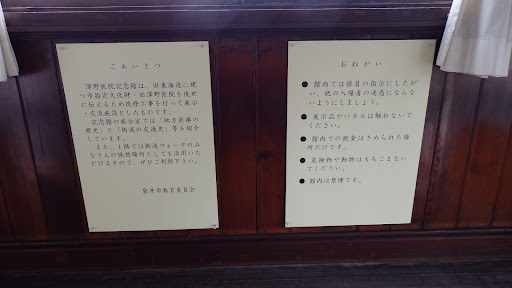 ごあいさつ
澤野医院記念館は、旧東海道に建
つ市指定文化財・旧澤野医院を後世
に伝えるため改修工事を行って展示
・交流施設としたものです。
記念館の展示室では「地方医療の
歴史」と「街道の交通史」等を紹介
しています。
また、1階では街道ウォークのみ
なさんの休憩場所としても活用いた
だけますので、ぜひご利用下さい。
袋井市教育委員会
おねがい
● 館内では係員の指示にしたが
い、他の入場者の迷惑にならな
いようにしましょう。
● 展示品やパネルは触れないで
ください。
● 館内での飲食はきめられた場
所だけです。
● 危険物や動物はもちこまない
でください。
● 館内は禁煙です。